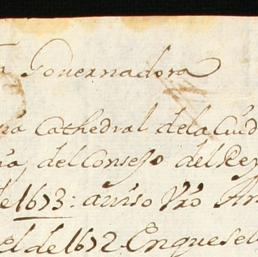 Gouernadora
Cathedral de la Ciud
del Consejo del Rey
de 1673: auiso Vro
el de 1672. En que se